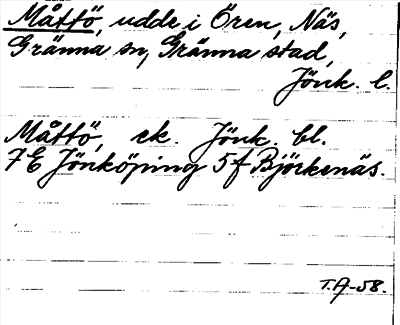 Måttö, udde i Ören, Näs,
Gränna sn, Gränna stad,
Jönk. l.
Måttö, ek. Jönk. bl.
7E Jönköping 5f Björkenäs.
T.A-58.